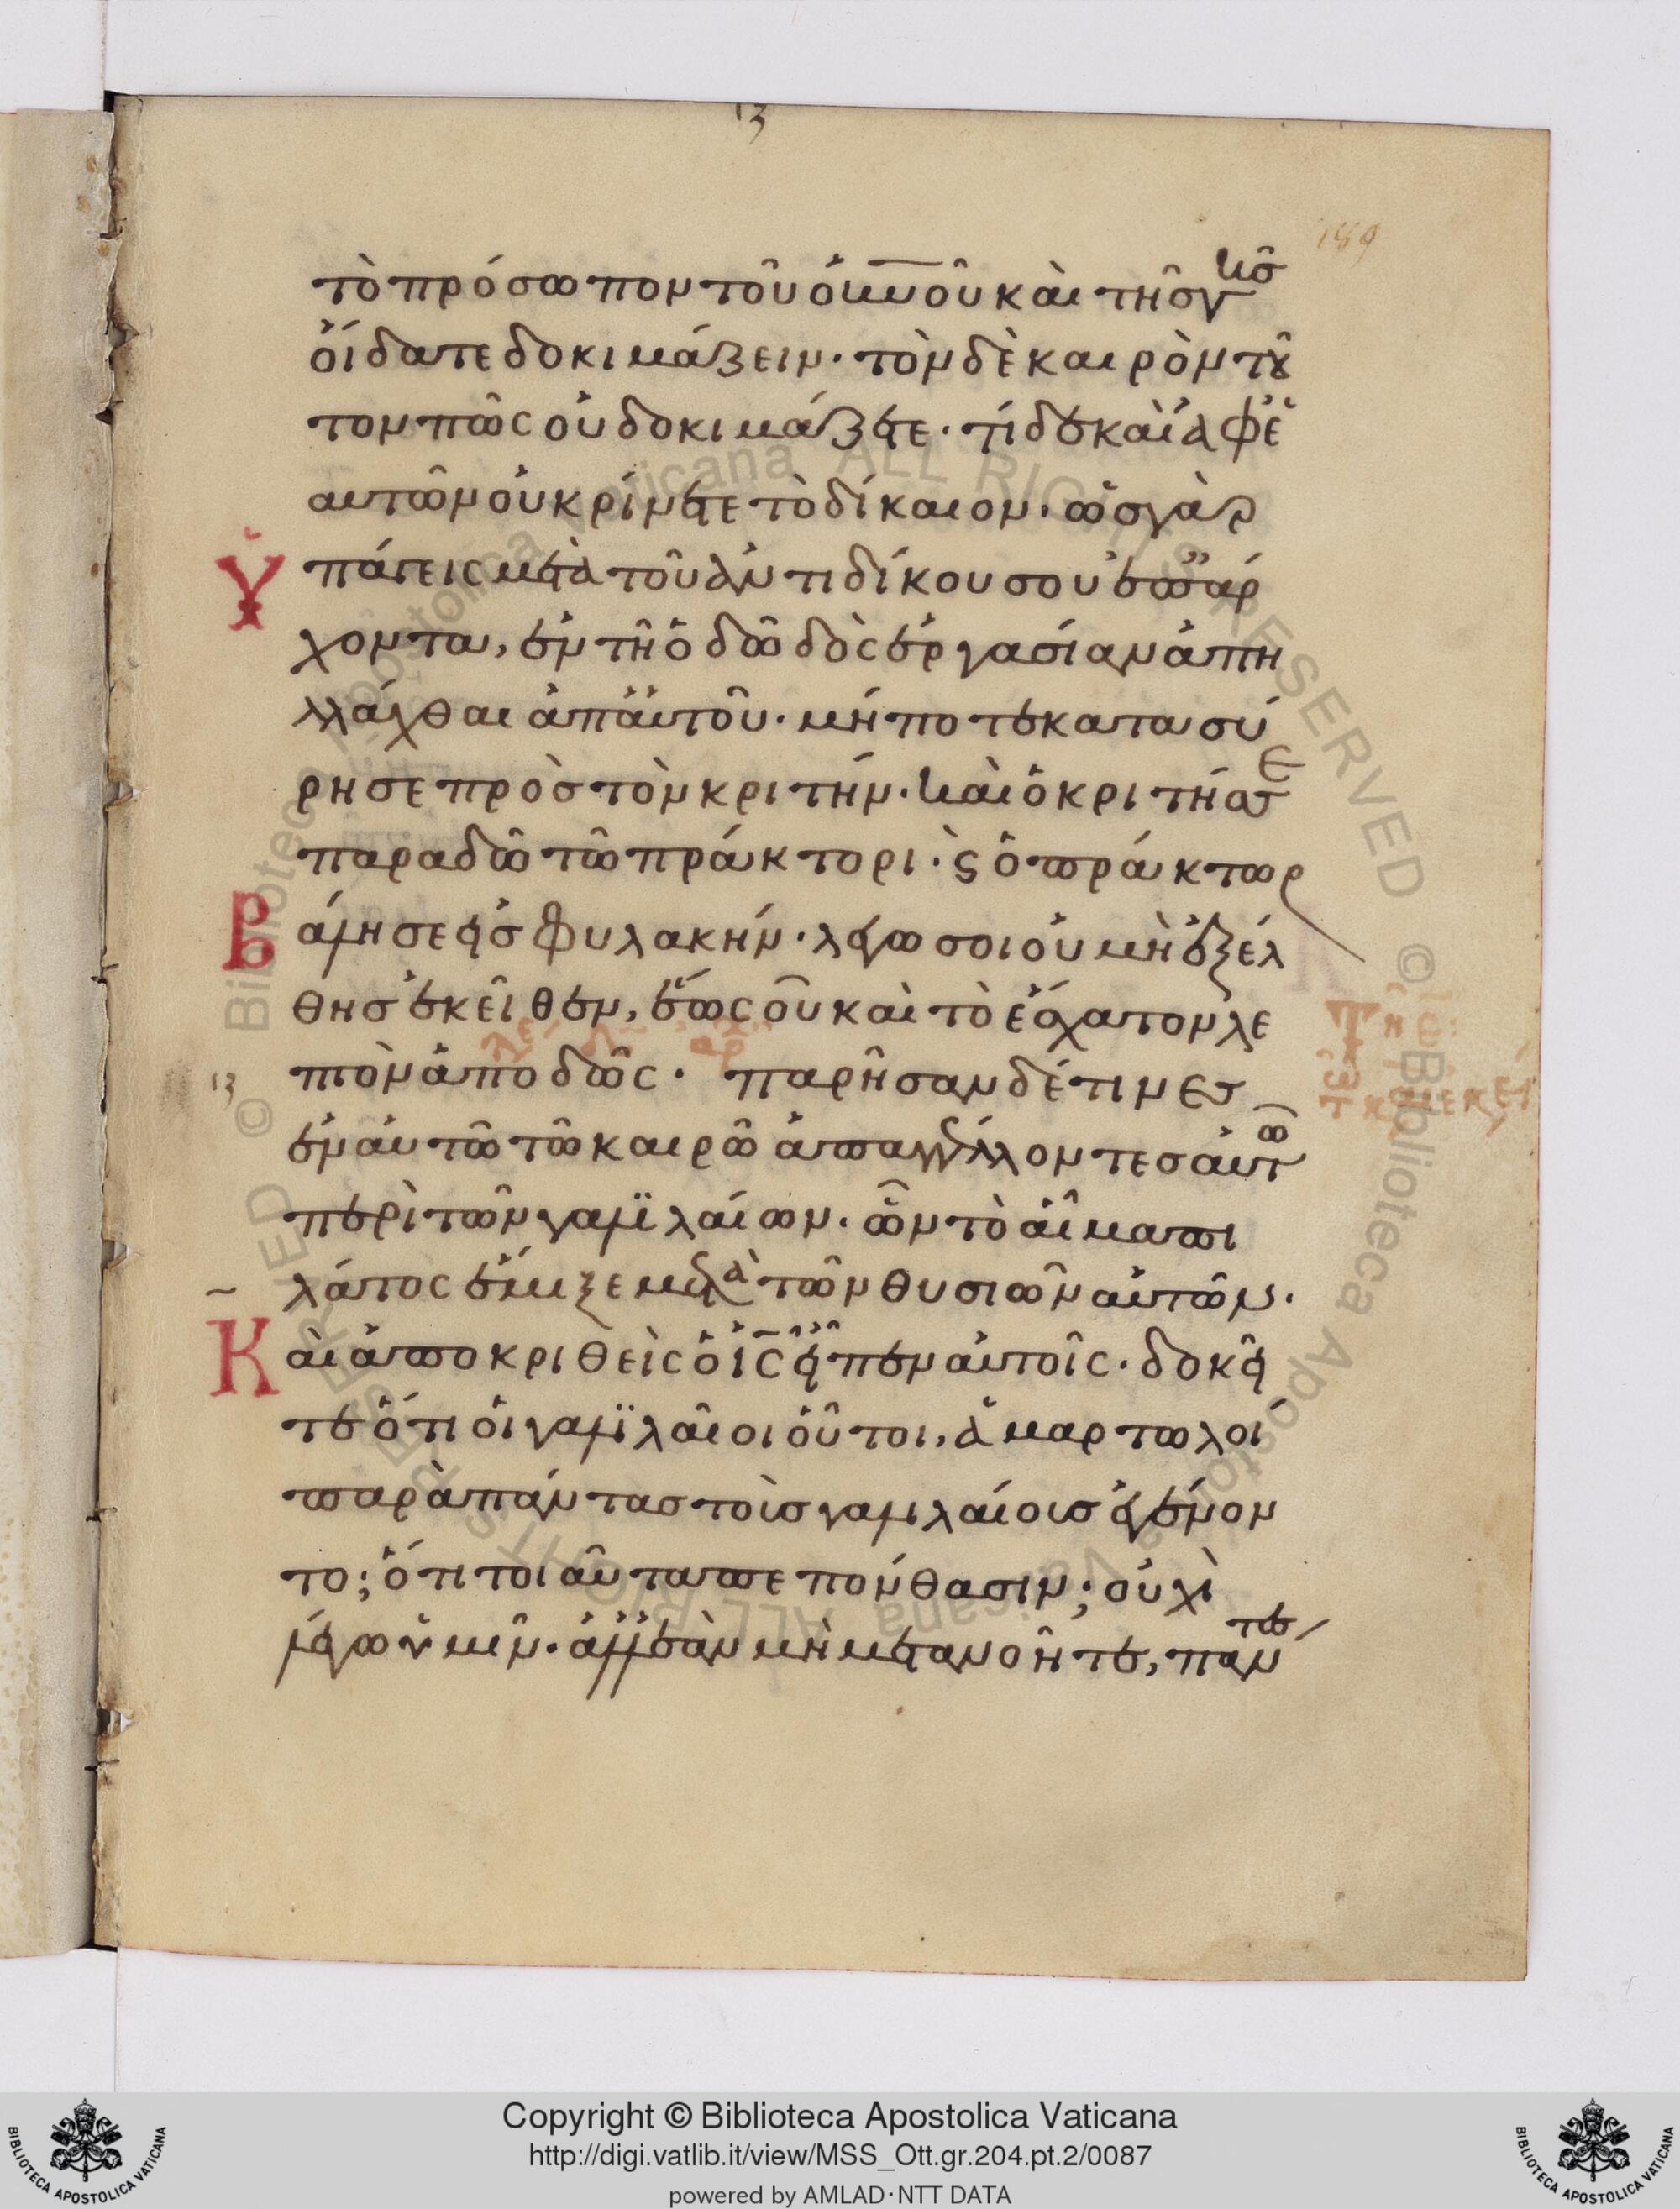 13
189
τὸ πρόσωπον τοῦ οὐνοῦ καὶ τῆσ γκσ
οἴδατε δοκιμάζειν· τὸν δὲ καιρὸν τοῦ
τον πῶς οὐ δοκιμάζετε· τί δὲ καὶ ἀφ' ἑ
αυτῶν οὐ κρίνετε τὸ δίκαιον· ὡσ γὰρ
Ὑπάγεις μετὰ τοῦ ἀντιδίκου σου ἐπ' ἄρ
χοντα, ἐν τῆ ὁδῶ δὸς ἐργασίαν ἀπη
λλάχθαι ἀπ' ἀυτοῦ· μήποτε κατασύ
ρη σε πρὸσ τὸν κριτήν· καὶ ὁ κριτήσ σε
παραδῶ τῶ πράκτορι· ϛ ὁ πράκτωρ
Βάλη σε εἰσ φυλακήν· λέγω σοι οὐ μὴ ἐξέλ
θησ ἐκεῖθεν, ἕως οῦ καὶ τὸ ἔσχατον λε
13 πτὸν ἀποδῶς· παρῆσαν δέ τινεσ
ἐν ἀυτῶ τῶ καιρῶ ἀπαγγέλλοντεσ ἀυτῶ
περὶ τῶν γαλϊλαίων· ὧν τὸ αἷμα πι
λάτος ἔμιξε μετὰ τῶν θυσιῶν αὐτῶν·
Κὰι ἀποκριθεὶς ὁ ΙϹ εἶπεν αὐτοῖς· δοκεῖ
τε ὅτι ὁι γαλϊλαῖοι οὗτοι, ἁμαρτωλοί
παρὰ πάντασ τοὺσ γαλιλαίουσ ἐγένον
το; ὅτι τοιαῦτα πεπόνθασιν; οὐχὶ
λέγω ὑμῖν· ἀλλ' ἐὰν μὴ μετανοῆτε, πάντεσ
Copyright © Biblioteca Apostolica Vaticana
http://digi.vatlib.it/view/MSS_Ott.gr.204.pt.2/0087
powered by AMLAD·NTT DATA
BIBLIOTECA APOSTOLICA VATICANA
BIBLIOTECA APOSTOLICA VATICANA